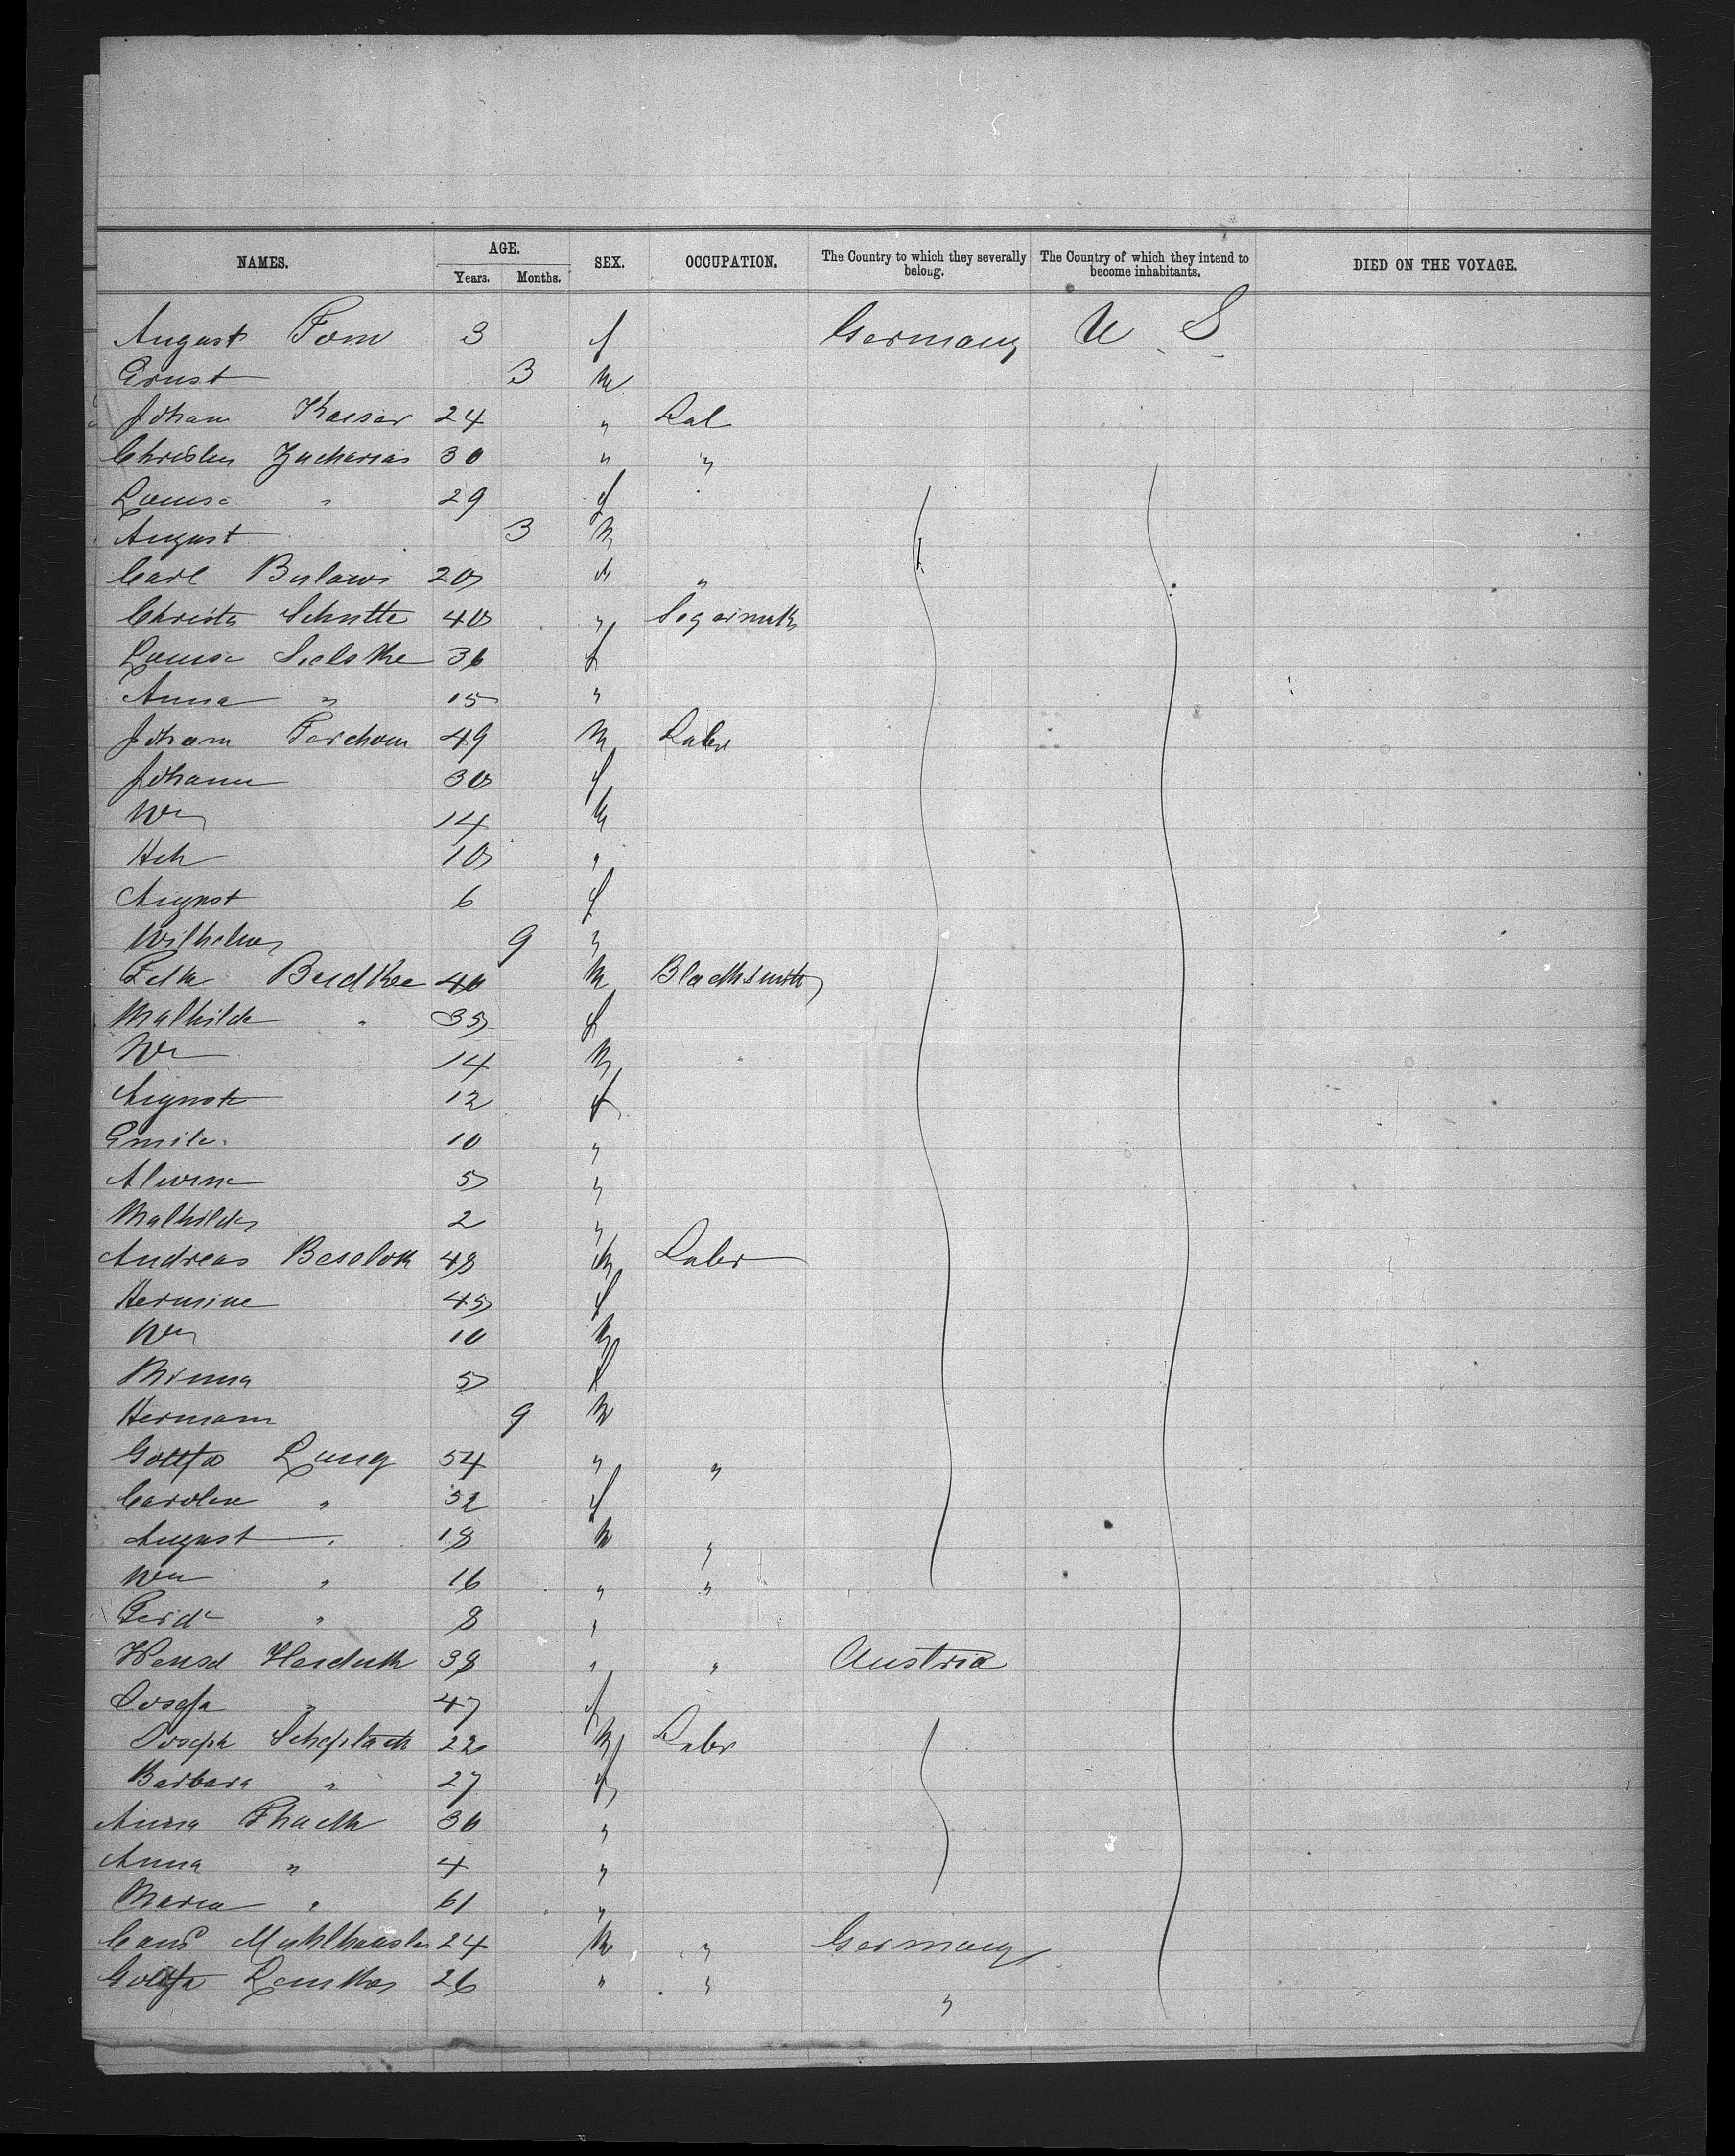 NAMES. AGE. Years. Months. SEX. OCCUPATION. The Country to which they severally belong. The Country of which they intend to become inhabitants. DIED ON THE VOYAGE.
August 3 f Germany U S
Ernst 3 M
Johann Kaiser 24 " Lab
Christn Zacharias 30 " "
Louise " 29 f
August 3 M
Carl Bulow 20 M "
Christn Schutte 40 " Segarmk
Louise 36 f
Anna " 15 "
Johann 49 M Labr
Johann 30 f
Wm 14 M
Hch 10 "
August 6 f
Wilhelm 9 "
Budke 40 M Blacksmith
Mathilde " 35 f
Wm 14 M
August 12 f
Emile 10 "
Alwine 5 "
Mathilde 2 "
Andreas 48 M Labr
Hermine 45 f
Wm 10 M
Minna 5 f
Hermann 9 M
Gottfd Lang 54 " "
Caroline " 52 f
August " 18 M "
Wm " 16 " "
Ferd " 8 "
Wensel Herduck 38 " " Austria
Josefa " 47 f
Joseph 22 M Labr
Barbara " 27 f
Anna 30 "
Anna " 4 "
Maria " 61 "
Muhlhausler 24 M " Germany
26 " " "